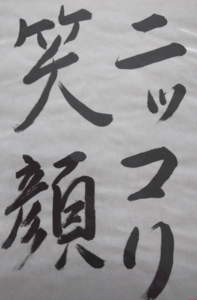 ニッコリ
笑顔